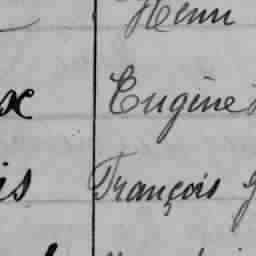 Henri
x Eugène
is François